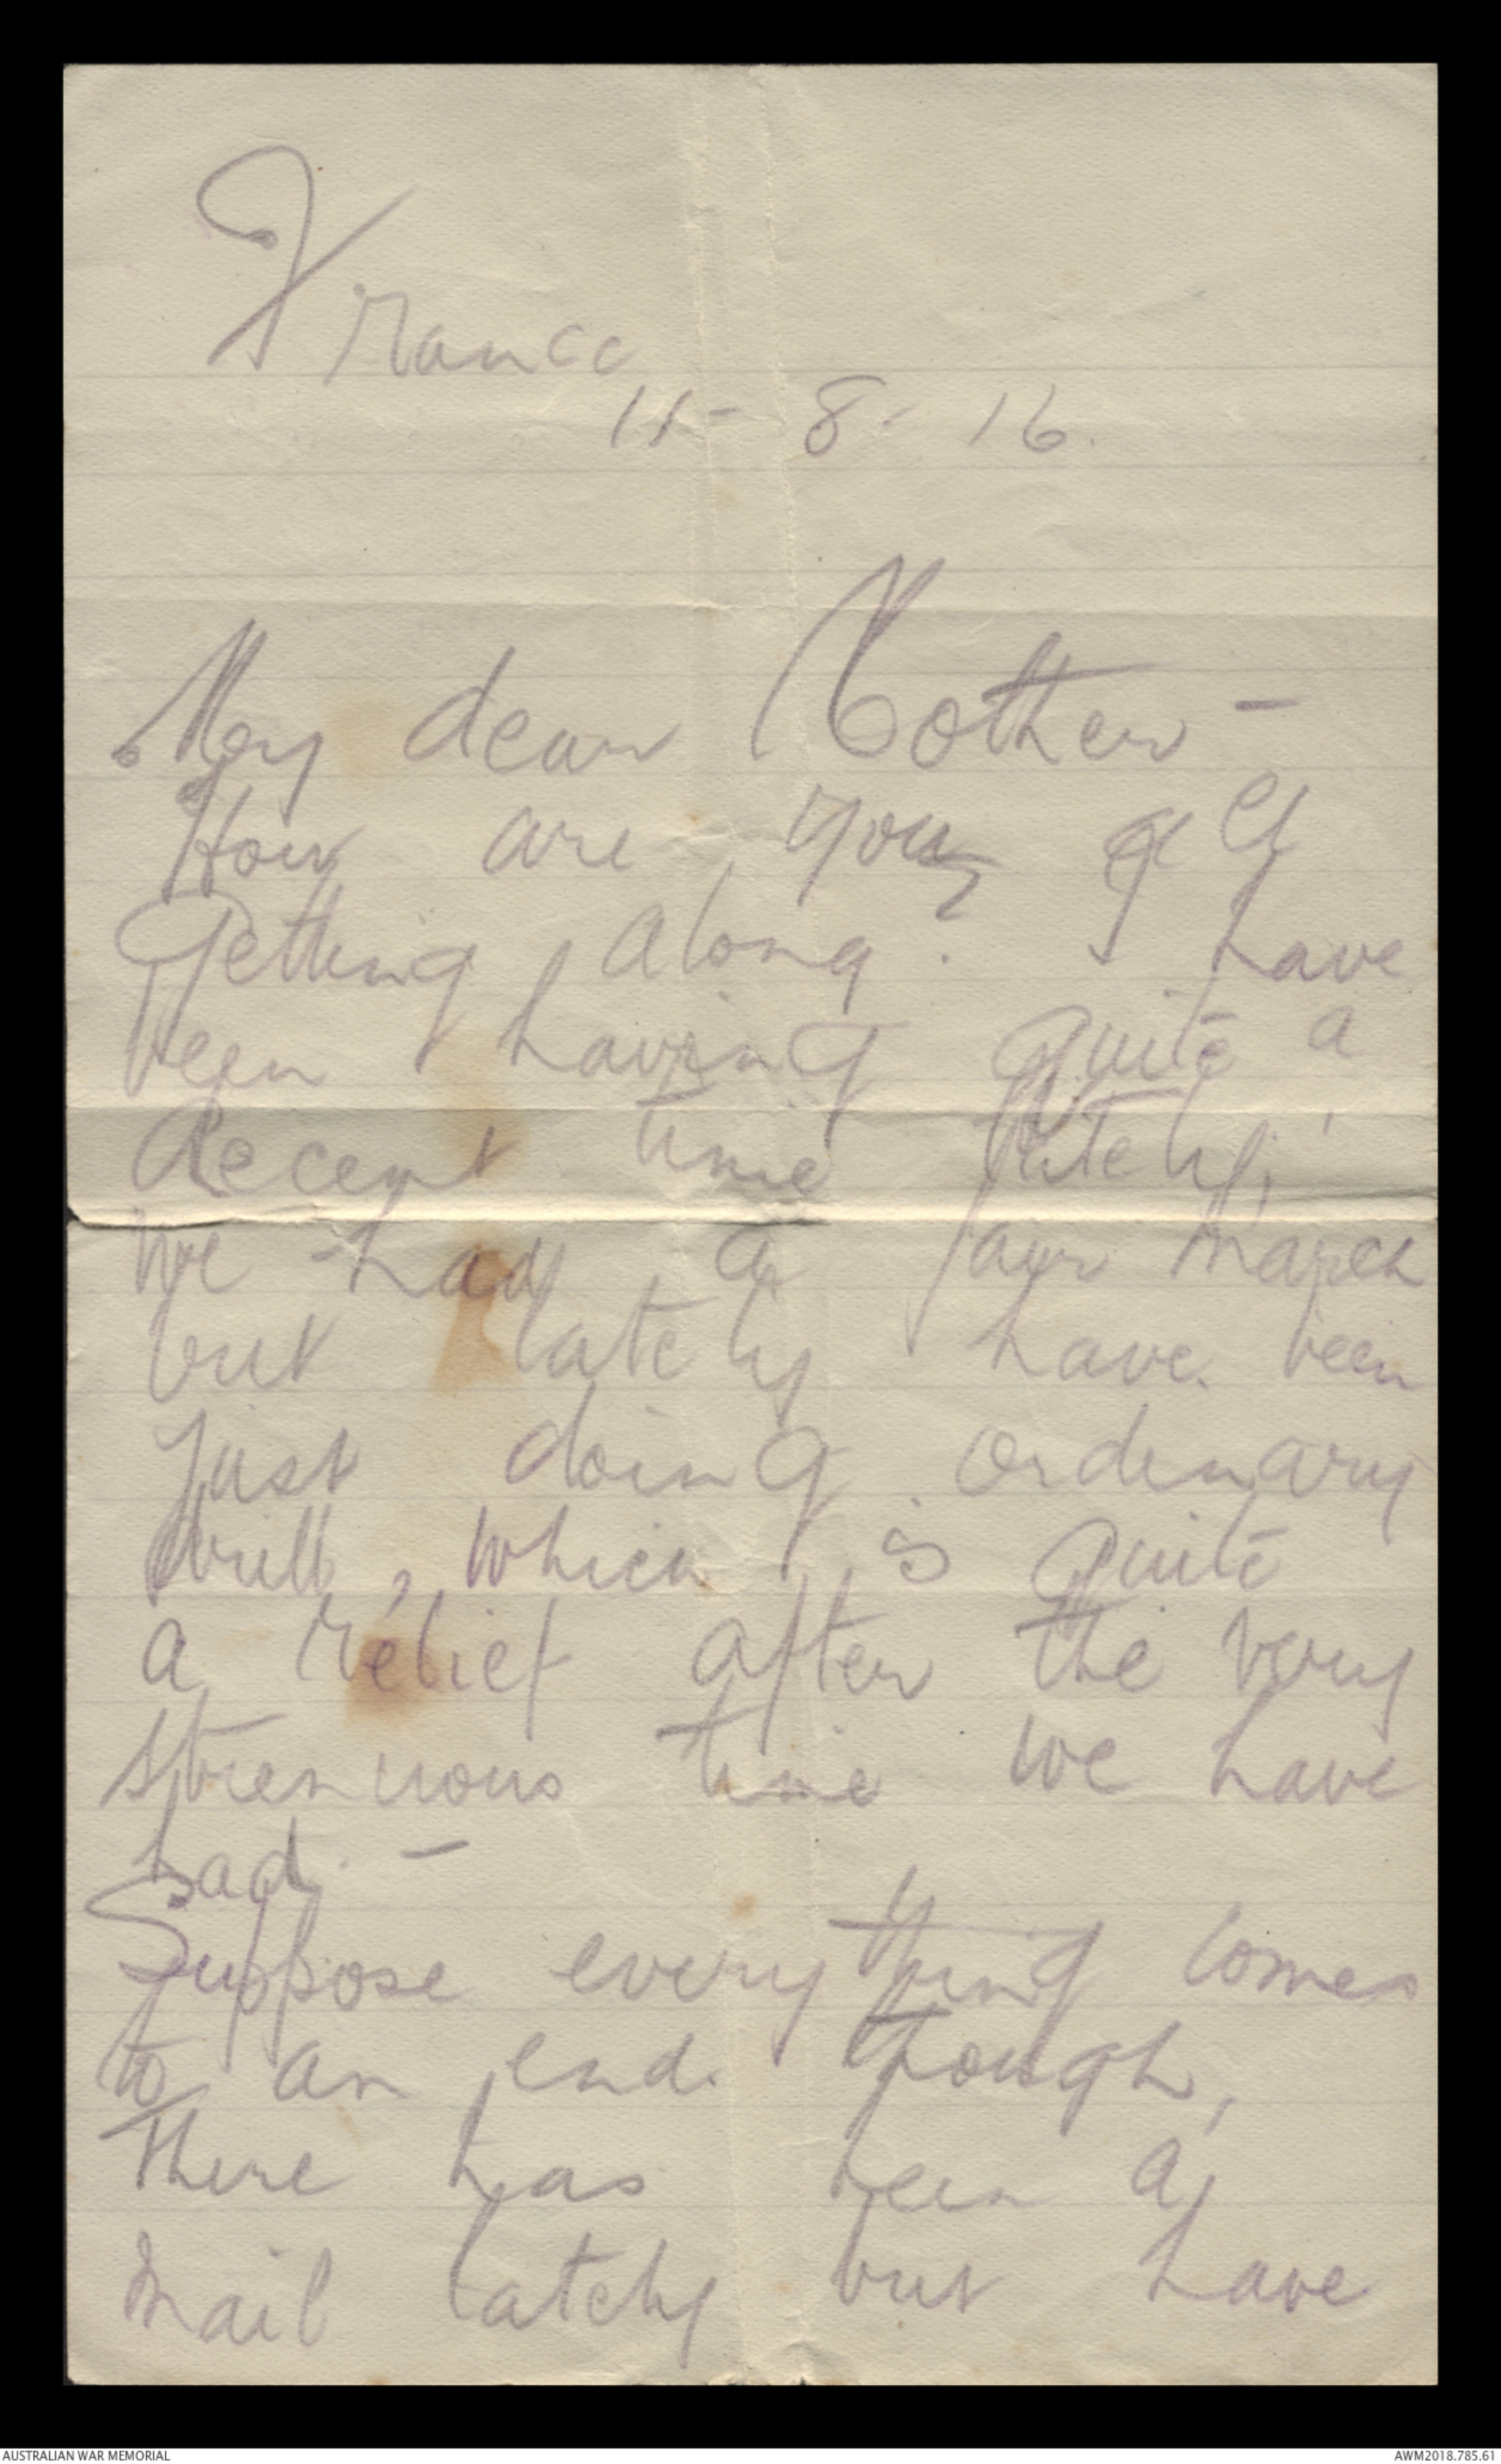 France
11-8-16.
My dear Mother -
How are you all
getting along? I have
been having quite a
decent time lately;
we had a fair march
but lately have been
just doing ordinary
drill, which is quite
a relief after the very
strenuous time we have
had. -
Suppose everything comes
to an end though,
there has been a
mail lately but have
AUSTRALIAN WAR MEMORIAL
AWM2018.785.61